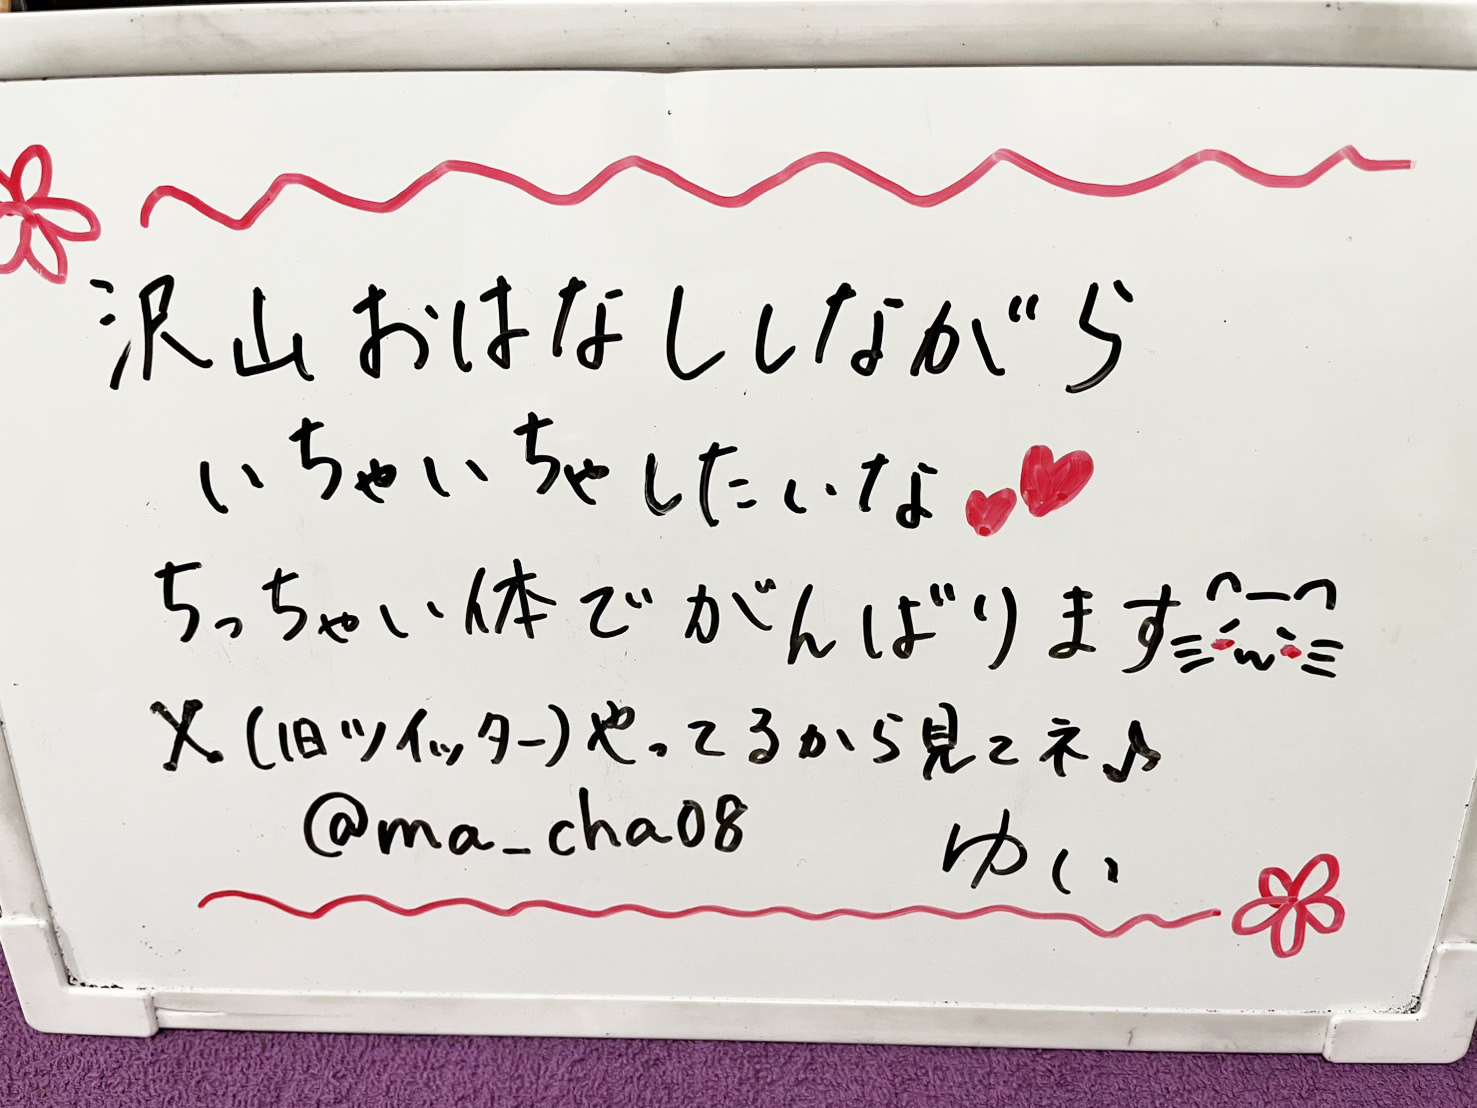 沢山おはなししながら
いちゃいちゃしたいな
ちっちゃい体でがんばります
X(旧ツイッター)やってるから見てネ♪
@ma_cha08
ゆい